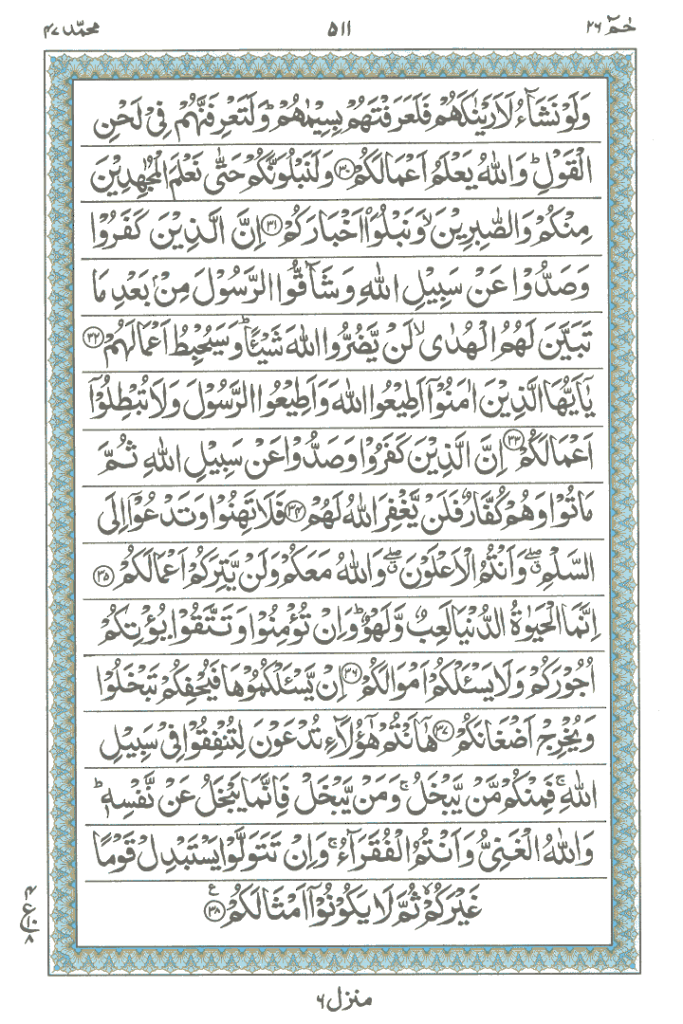 حٰمٓ ٢٦ ٥١١ محمّد ٤٧
وَلَوْ نَشَآءُ لَاَرَيْنٰكَهُمْ فَلَعَرَفْتَهُمْ بِسِيْمٰهُمْ ؕ وَلَتَعْرِفَنَّهُمْ فِيْ لَحْنِ
الْقَوْلِ ؕ وَاللّٰهُ يَعْلَمُ اَعْمَالَكُمْ ﴿٣٠﴾ وَلَنَبْلُوَنَّكُمْ حَتّٰى نَعْلَمَ الْمُجٰهِدِيْنَ
مِنْكُمْ وَالصّٰبِرِيْنَ ۙ وَنَبْلُوَا۟ اَخْبَارَكُمْ ﴿٣١﴾ اِنَّ الَّذِيْنَ كَفَرُوْا
وَصَدُّوْا عَنْ سَبِيْلِ اللّٰهِ وَشَآقُّوا الرَّسُوْلَ مِنْۢ بَعْدِ مَا
تَبَيَّنَ لَهُمُ الْهُدٰى ۙ لَنْ يَّضُرُّوا اللّٰهَ شَيْـًٔا ؕ وَسَيُحْبِطُ اَعْمَالَهُمْ ﴿٣٢﴾
يٰۤاَيُّهَا الَّذِيْنَ اٰمَنُوْۤا اَطِيْعُوا اللّٰهَ وَاَطِيْعُوا الرَّسُوْلَ وَلَا تُبْطِلُوْۤا
اَعْمَالَكُمْ ﴿٣٣﴾ اِنَّ الَّذِيْنَ كَفَرُوْا وَصَدُّوْا عَنْ سَبِيْلِ اللّٰهِ ثُمَّ
مَاتُوْا وَهُمْ كُفَّارٌ فَلَنْ يَّغْفِرَ اللّٰهُ لَهُمْ ﴿٣٤﴾ فَلَا تَهِنُوْا وَتَدْعُوْۤا اِلَى
السَّلْمِ ۖ وَاَنْتُمُ الْاَعْلَوْنَ ۖ وَاللّٰهُ مَعَكُمْ وَلَنْ يَّتِرَكُمْ اَعْمَالَكُمْ ﴿٣٥﴾
اِنَّمَا الْحَيٰوةُ الدُّنْيَا لَعِبٌ وَّلَهْوٌ ؕ وَاِنْ تُؤْمِنُوْا وَتَتَّقُوْا يُؤْتِكُمْ
اُجُوْرَكُمْ وَلَا يَسْـَٔلْكُمْ اَمْوَالَكُمْ ﴿٣٦﴾ اِنْ يَّسْـَٔلْكُمُوْهَا فَيُحْفِكُمْ تَبْخَلُوْا
وَيُخْرِجْ اَضْغَانَكُمْ ﴿٣٧﴾ هٰۤاَنْتُمْ هٰۤؤُلَآءِ تُدْعَوْنَ لِتُنْفِقُوْا فِيْ سَبِيْلِ
اللّٰهِ ۚ فَمِنْكُمْ مَّنْ يَّبْخَلُ ۚ وَمَنْ يَّبْخَلْ فَاِنَّمَا يَبْخَلُ عَنْ نَّفْسِهٖ ؕ
وَاللّٰهُ الْغَنِيُّ وَاَنْتُمُ الْفُقَرَآءُ ۚ وَاِنْ تَتَوَلَّوْا يَسْتَبْدِلْ قَوْمًا
غَيْرَكُمْ ۙ ثُمَّ لَا يَكُوْنُوْۤا اَمْثَالَكُمْ ﴿٣٨﴾ ع
منزل ٦